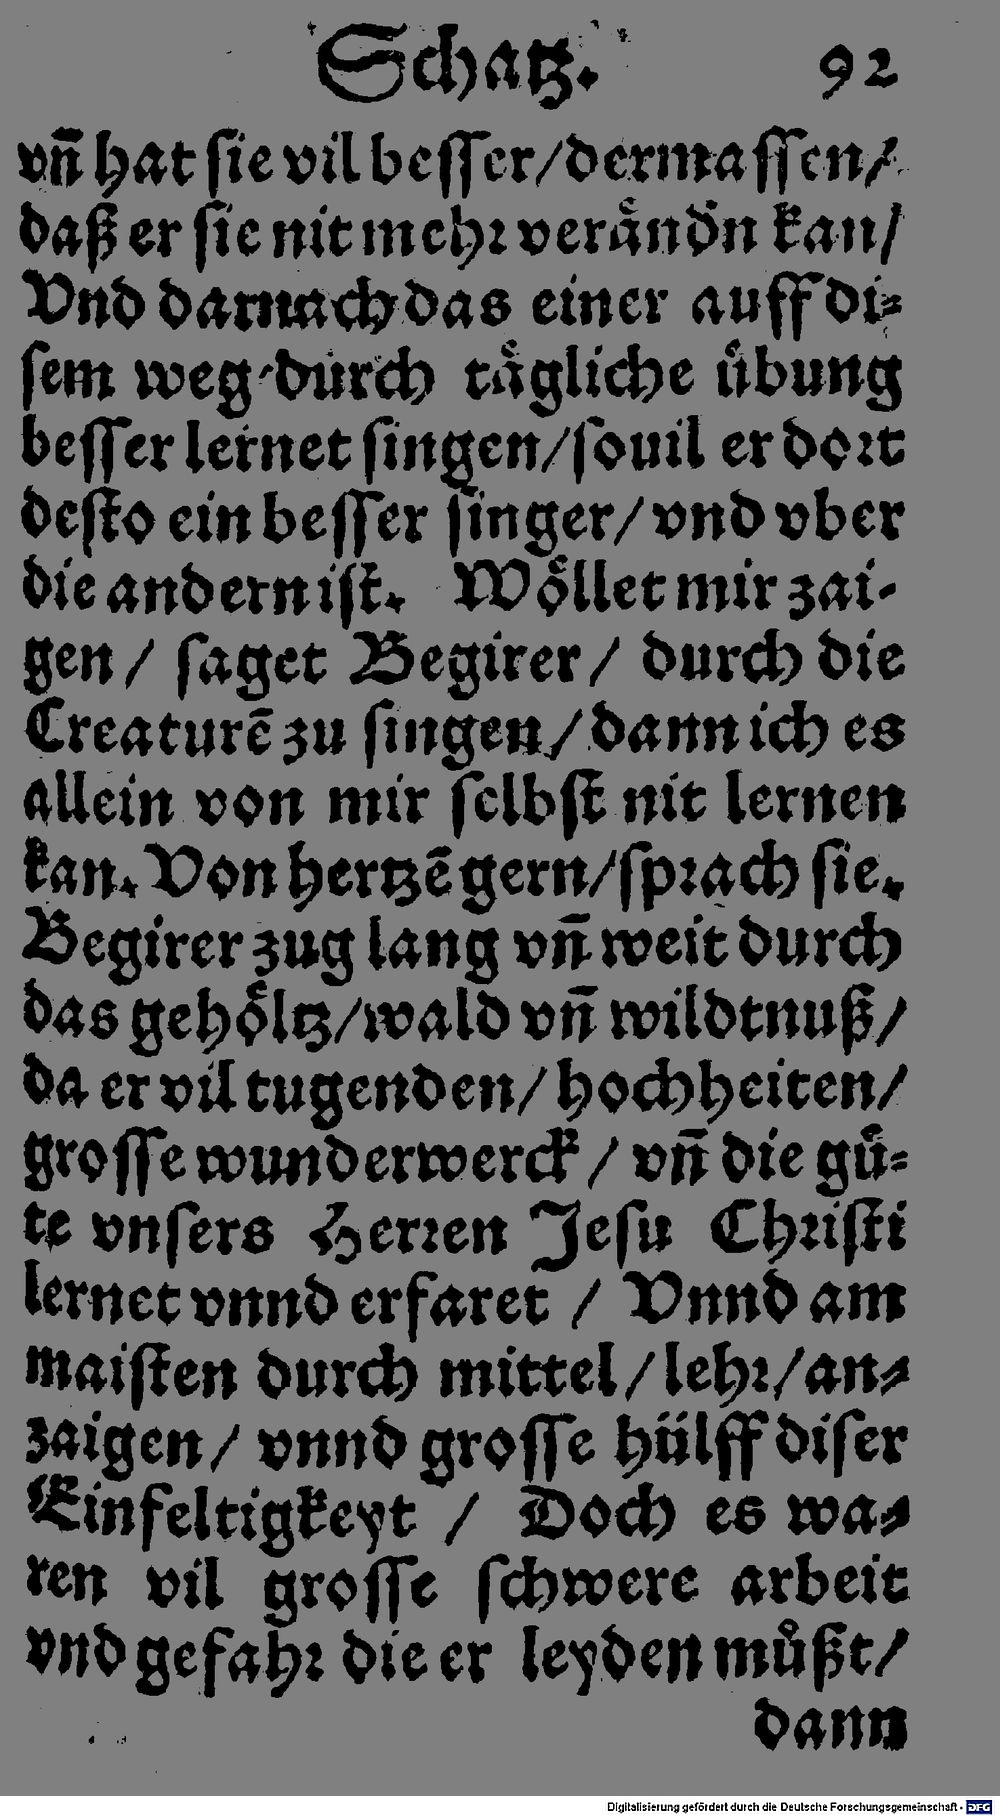 Schatz. 92
vñ hat sie vil besser/dermassen/
daß er sie nit mehr verändn̄ kan/
Vnd darnach das einer auff di⸗
sem weg durch taͤgliche uͤbung
besser lernet singen/souil er dort
desto ein besser singer/vnd vber
die andern ist. Woͤllet mir zai-
gen/ saget Begirer/ durch die
Creaturē zu singen/dann ich es
allein von mir selbst nit lernen
kan. Von hertzē gern/sprach sie.
Begirer zug lang vñ weit durch
das gehoͤltz/wald vñ wildtnuß/
da er vil tugenden/hochheiten/
grosse wunderwerck/ vñ die guͤ⸗
te vnsers Herren Jesu Christi
lernet vnnd erfaret / Vnnd am
maisten durch mittel/lehr/an⸗
zaigen/ vnnd grosse hülff diser
Einfeltigkeyt / Doch es wa⸗
ren vil grosse schwere arbeit
vnd gefahr die er leyden muͤßt/
dann
Digitalisierung gefördert durch die Deutsche Forschungsgemeinschaft - DFG